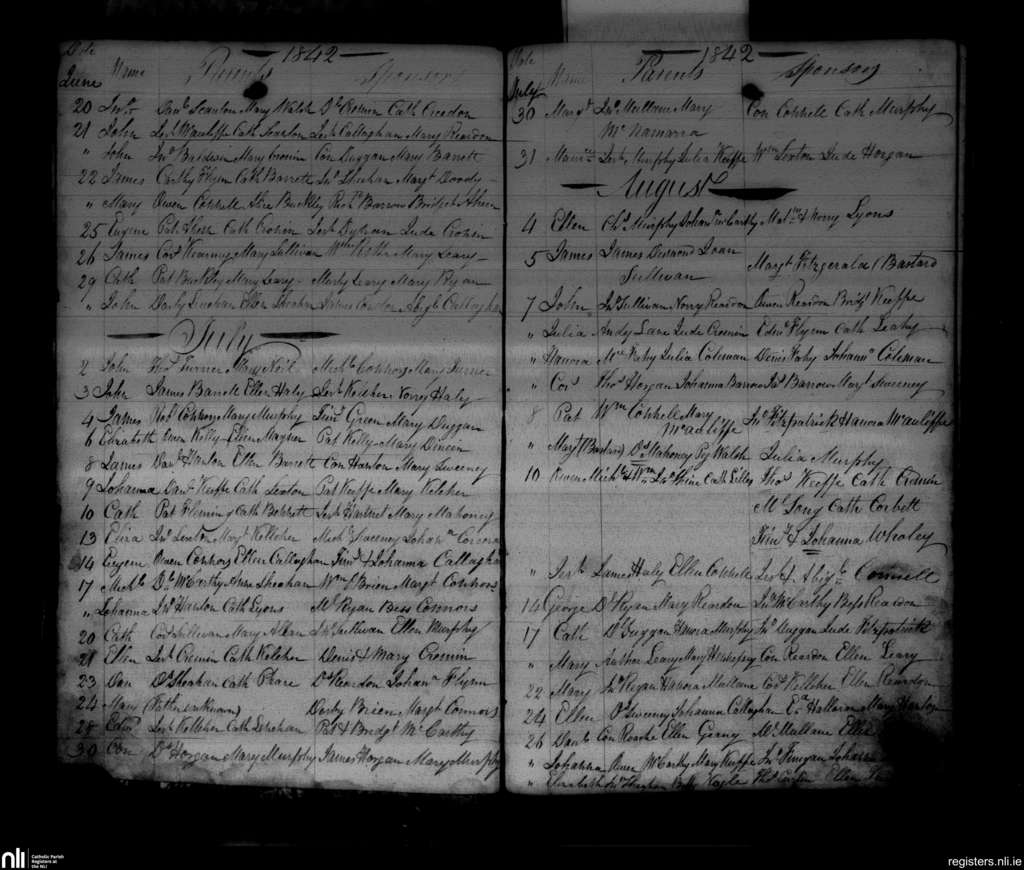 Date 1842
June Name Parents Sponsors
20 Jno Danl Scanlon Mary Welsh Ds Cronin Cath Creedon
21 John Jerh McAuliffe Cath Scanlon Jerh Callaghan Mary Reardon
" John Jno Baldwin Mary Cronin Con Duggan Mary Barrett
22 James Carthy Flynn Cath Barrett Jno Sheehan Margt Doody
" Mary Owen Connell Buckley Barrow Bridget Ahern
25 Eugene Pat Cath Cronin Jerh Juda Cronin
26 James Cors Kearney Mary Sullivan Wm Mary Leary
29 Cath Pat Buckley Mary Leary Murty Leary Mary Flynn
" John Darby Sheehan James Condon Abigl Callaghan
July
2 John Thos Turner Mary Michl Connors Mary Turner
3 John James Barrett Ellen Haly Jerh Norry Haly
4 James Robt Connors Mary Murphy Timy Green Mary Duggan
6 Elizabeth Owen Kelly Ellen Pat Kelly Mary
8 James Danl Hanlon Ellen Barrett Con Hanlon Mary Sweeney
9 Johanna Danl Keeffe Cath Sexton Pat Keeffe Mary Kelcher
10 Cath Pat Fleming Cath Jerh Hartnet Mary Mahoney
13 Eliza Jno Margt Kelleher Michl Sweeney Johana Corcoran
14 Eugene Owen Connors Ellen Callaghan Timy & Johanna Callaghan
17 Michl Ds McCarthy Anne Sheehan Wm Brien Margt Connors
" Johanna Jno Hanlon Cath Lyons Ml Ryan Bess Connors
20 Cath Cors Sullivan Mary Jno Sullivan Ellen Murphy
21 Ellen Jerh Cremin Cath Kelcher Denis & Mary Cronin
23 Dan Ds Sheahan Cath Ds Reardon Johana Flynn
24 Mary (Father unknown) Darby Brien Margt Connors
28 Edmd Jerh Kelleher Cath Lenehan Pat & Bridgt McCarthy
30 Con Ds Horgan Mary Murphy James Horgan Mary Murphy
Date 1842
July Name Parents Sponsors
30 Margt Jno Mullane Mary Con Connell Cath Murphy
McNamarra
31 Maurce Jerh Murphy Julia Keeffe Wm Sexton Jude Horgan
August
4 Ellen Chs Murphy Johana McCarthy & Norry Lyons
5 James James Desmond Joan
Sullivan Margt Fitzgerald / Bastard
7 John Jno Sullivan Norry Reardon Owen Reardon Bridgt Keeffe
" Julia Andy Lane Jude Cronin Edmd Flynn Cath Leahy
" Hanora Julia Coleman Denis Johanna Coleman
" Cors Thos Horgan Johanna Barrow Jas Barrow Mary Sweeney
8 Pat Wm Connell Mary
McAuliffe Jno Fitzpatrick & Hanora McAuliffe
" Margt (Bastard) Ds Mahoney Peg Walsh Julia Murphy
10 Michl & Wm Jno Cath Thos Keeffe Cath Cronin
Ml Long Cath Corbett
& Johanna Whaley
" Jerh James Haly Ellen Connell Jerh & Abigl Connell
14 George Ds Ryan Mary Reardon Jno McCarthy Bess Reardon
17 Cath Ds Duggan Hanora Murphy Jno Duggan Jude Fitzpatrick
" Mary Arthur Leary Mary Con Reardon Ellen Leary
22 Mary Jno Regan Hanora Mullane Cors Kelleher Ellen Reardon
24 Ellen Ps Sweeney Johanna Callaghan Halloran Mary Hanlon
26 Danl Con Roache Ellen Geany Ml Mullane Ellen
" Johanna Owen McCarthy Mary Keeffe Jno Finegan Johanna
" Elizabeth Jno Betty Nagle Thos Ellen
nli
Catholic Parish
Registers at
the NLI
registers.nli.ie